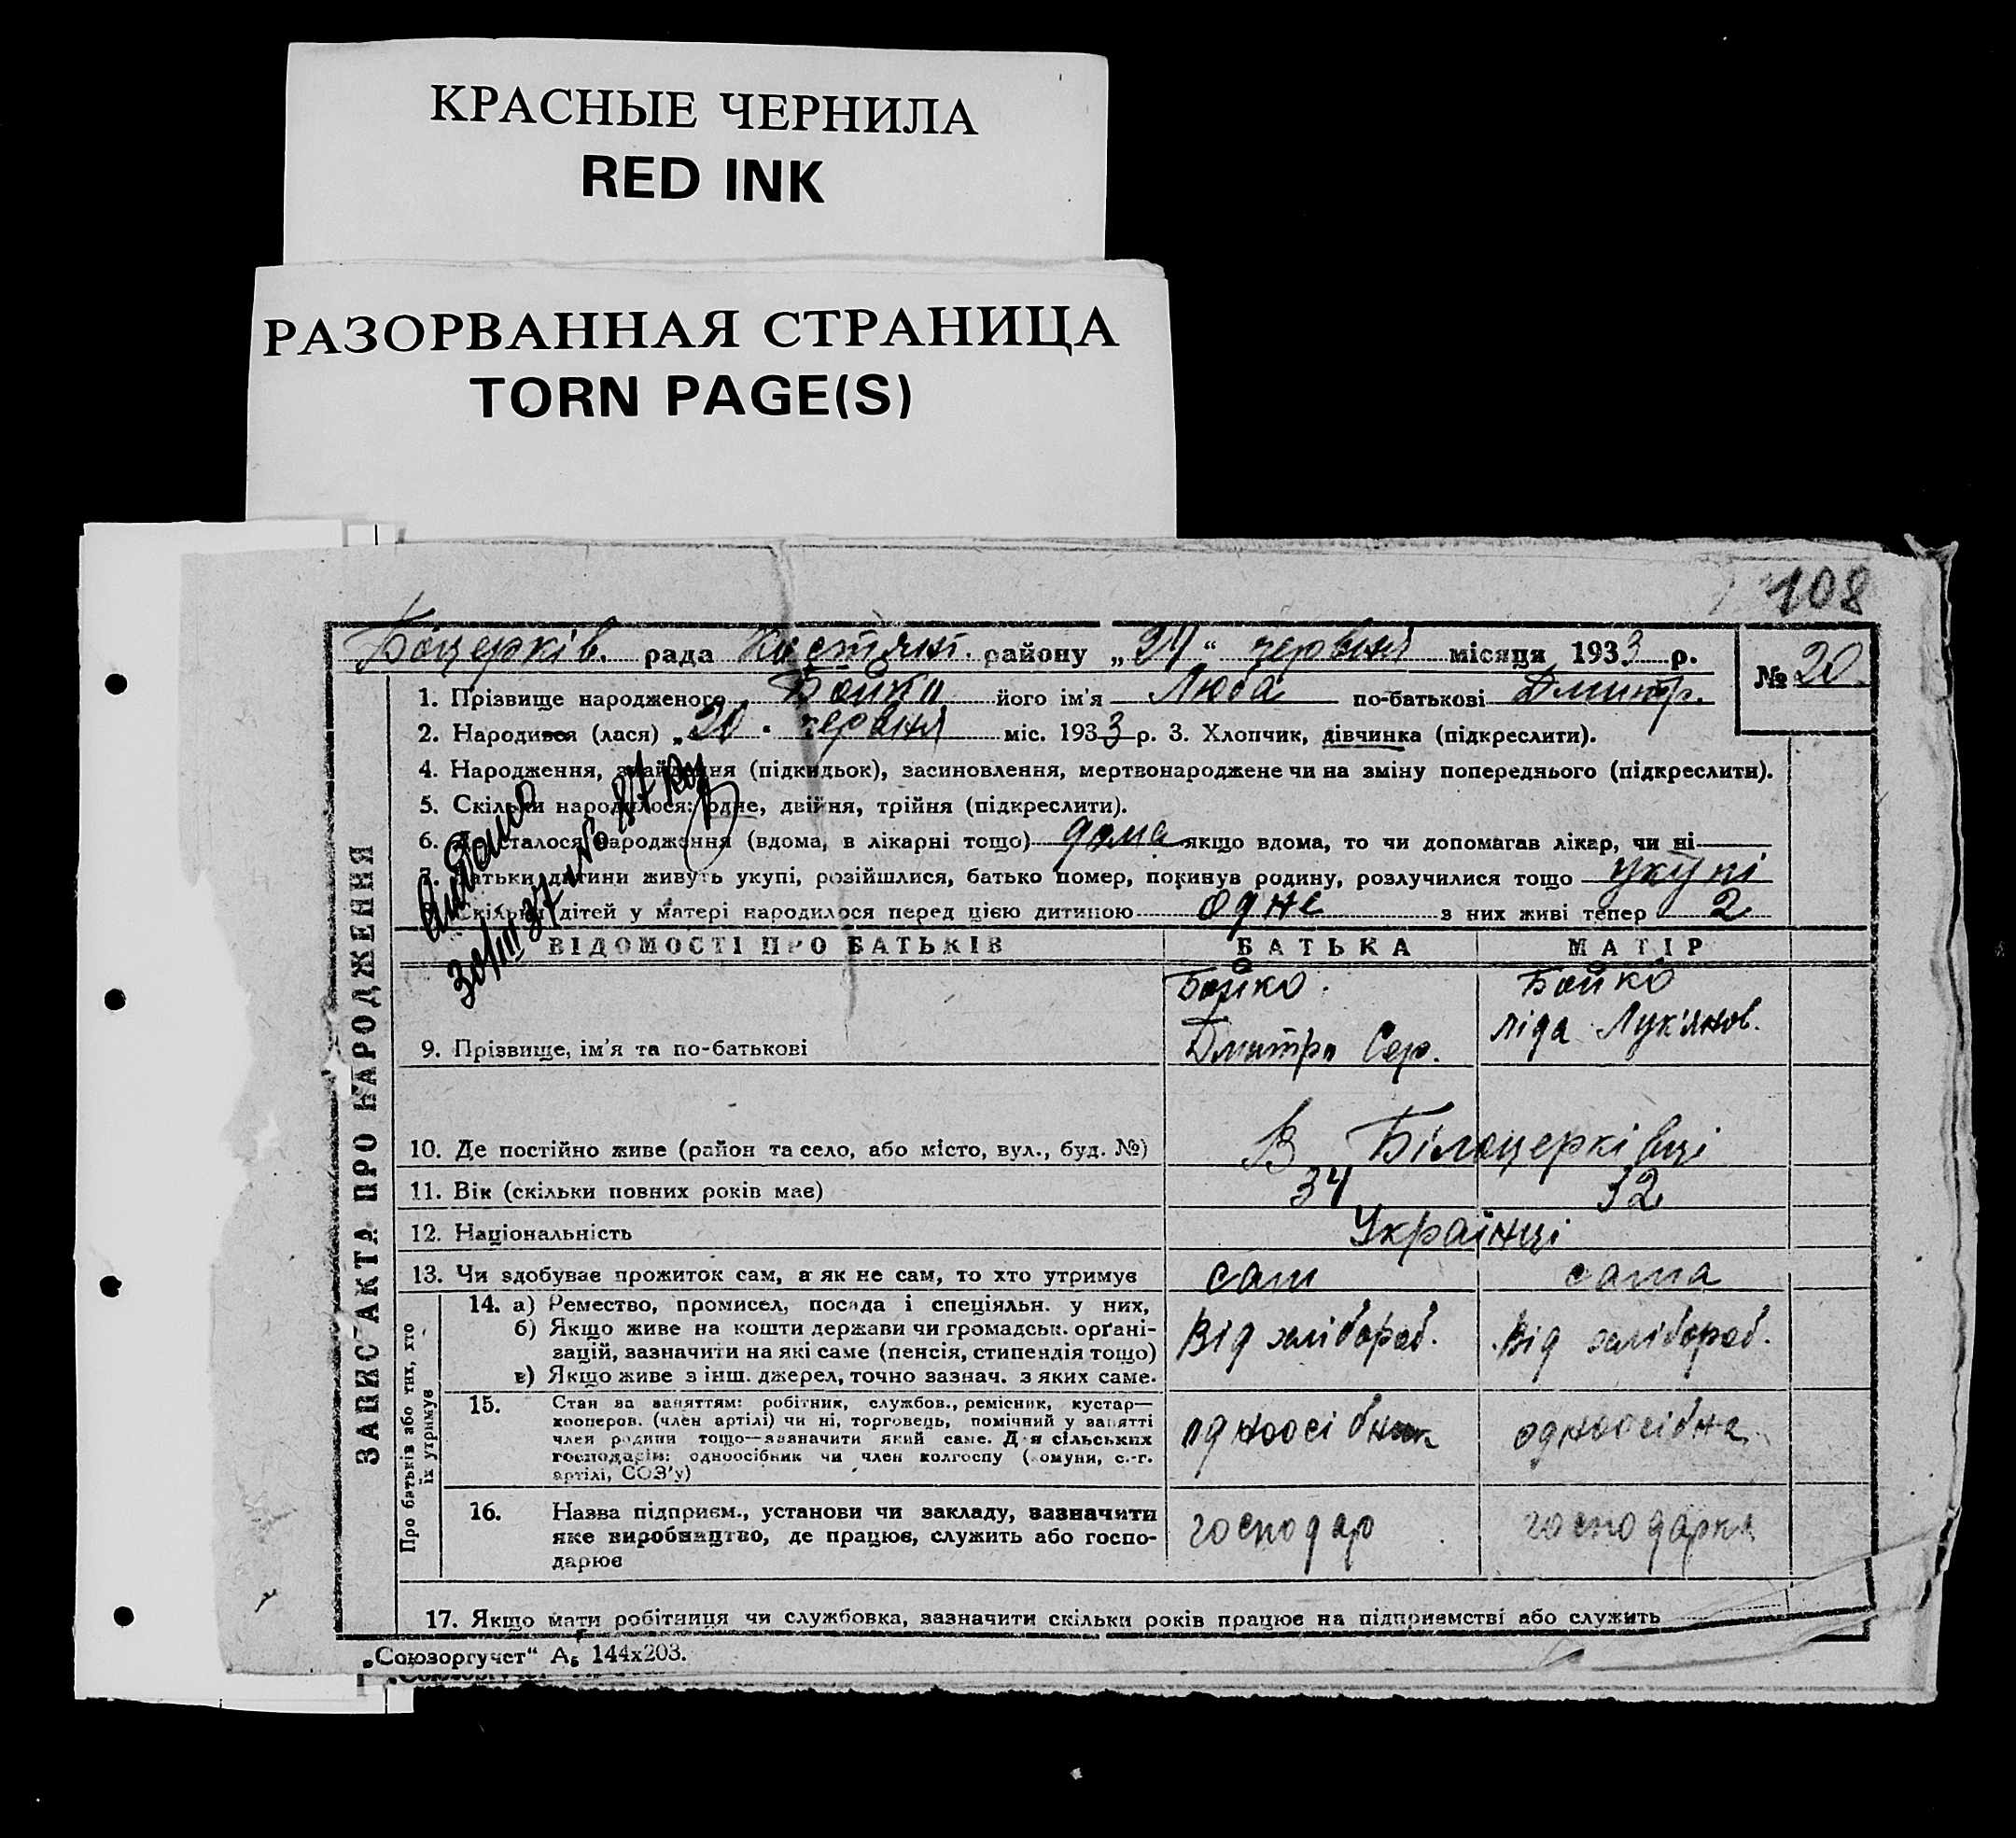 КРАСНЫЕ ЧЕРНИЛА
RED INK
РАЗОРВАННАЯ СТРАНИЦА
TORN PAGE(S)
108
Біцерків. рада Костянт. району „24“ червня місяця 1933 р.
№ 20
1. Прізвище народженого Бойко його ім'я Люба по-батькові Дмитр.
2. Народився (лася) „20 " червня міс. 1933 р. 3. Хлопчик, дівчинка (підкреслити).
4. Народження, знайдення (підкидьок), засиновлення, мертвонароджене чи на зміну попереднього (підкреслити).
5. Скільки народилося: одне, двійня, трійня (підкреслити).
6. Де сталося народження (вдома, в лікарні тощо) дома якщо вдома, то чи допомагав лікар, чи ні
7. Батьки дитини живуть укупі, розійшлися, батько помер, покинув родину, розлучилися тощо укупі
Скільки дітей у матері народилося перед цією дитиною одне з них живі тепер 2
30/III 37 № 87
ЗАПИС АКТА ПРО НАРОДЖЕННЯ
ВІДОМОСТІ ПРО БАТЬКІВ БАТЬКА МАТІР
9. Прізвище, ім'я та по-батькові
Бойко.
Дмитро Сер.
Бойко
Ліда Лук'янов.
10. Де постійно живе (район та село, або місто, вул., буд. №) В Білоцерківці
11. Вік (скільки повних років має) 34 32
12. Національність Українці
13. Чи здобуває прожиток сам, а як не сам, то хто утримує сам сама
Про батьків або тих, хто
їх утримує
14. а) Ремество, промисел, посада і спеціяльн. у них,
б) Якщо живе на кошти держави чи громадськ. органі-
зацій, зазначити на які саме (пенсія, стипендія тощо)
в) Якщо живе з інш. джерел, точно зазнач. з яких саме.
Від хлібороб. Від хлібороб.
15. Стан за заняттям: робітник, службов., ремісник, кустар—
кооперов. (член артілі) чи ні, торговець, помічний у занятті
член родини тощо—зазначити який саме. Для сільських
господарів: одноосібник чи член колгоспу (комуни, с.-г.
артілі, СОЗ'у)
одноосібник одноосібна
16. Назва підприєм., установи чи закладу, зазначити
яке виробництво, де працює, служить або госпо-
дарює
господар господарка
17. Якщо мати робітниця чи службовка, зазначити скільки років працює на підприємстві або служить
„Союзоргучет“ А₅ 144х203.